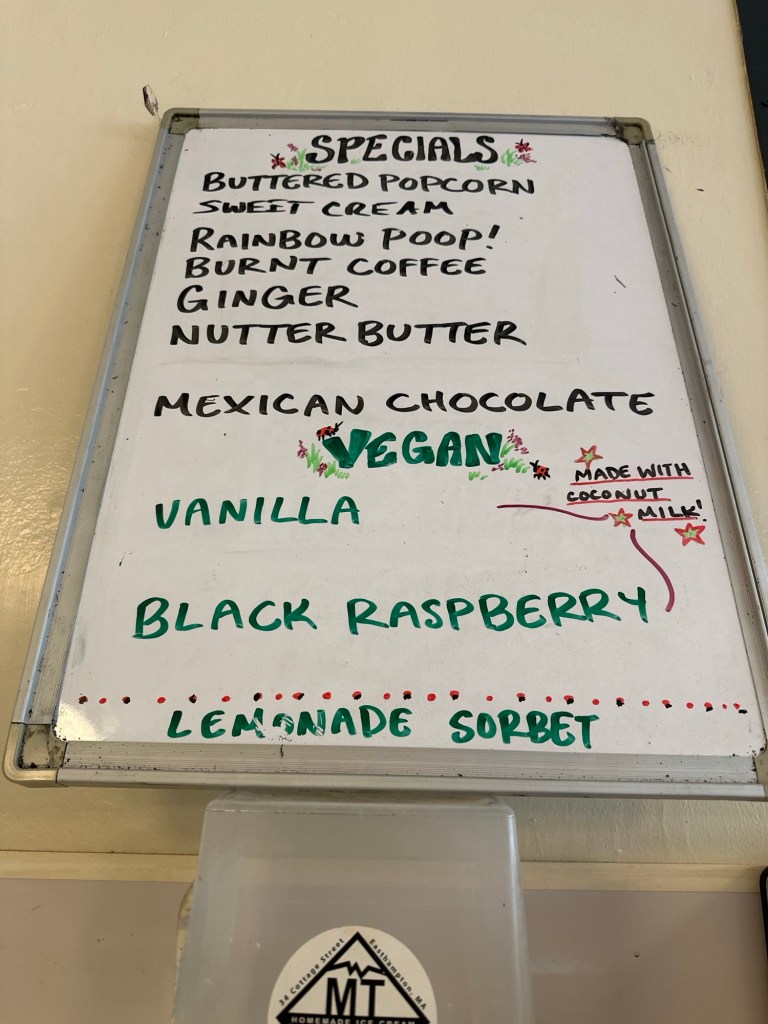 SPECIALS
BUTTERED POPCORN
SWEET CREAM
RAINBOW POOP!
BURNT COFFEE
GINGER
NUTTER BUTTER
MEXICAN CHOCOLATE
VEGAN
MADE WITH
COCONUT
MILK!
VANILLA
BLACK RASPBERRY
LEMONADE SORBET
34 Cottage Street
Easthampton, MA
MT
HOMEMADE ICE CREAM